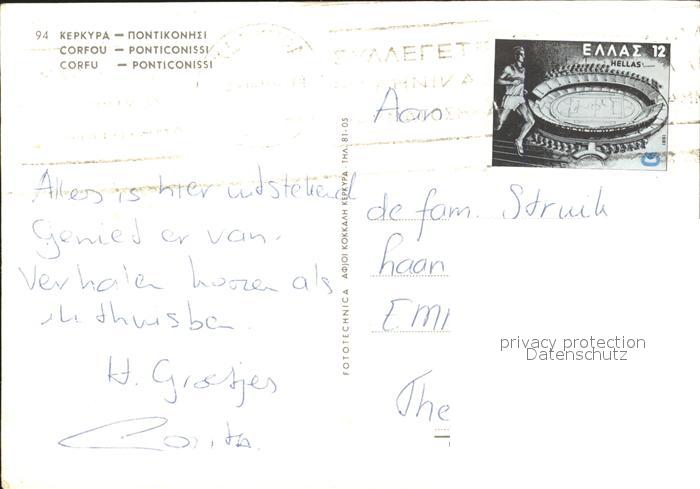 94 ΚΕΡΚΥΡΑ — ΠΟΝΤΙΚΟΝΗΣΙ
CORFOU — PONTICONISSI
CORFU — PONTICONISSI
ΣΥΛΛΕΓΕΤ
ΕΛΛΑΣ 12
HELLAS
1981
Aan
Alles is hier uitstekend
Geniet er van.
Verhalen horen als
ik thuisben.
H. Groetjes
Corita.
FOTOTECHNICA ΑΦΙΟΙ ΚΟΚΚΑΛΗ ΚΕΡΚΥΡΑ ΤΗΛ. 81-05
de fam. Struik
haan
EMM
The
privacy protection
Datenschutz